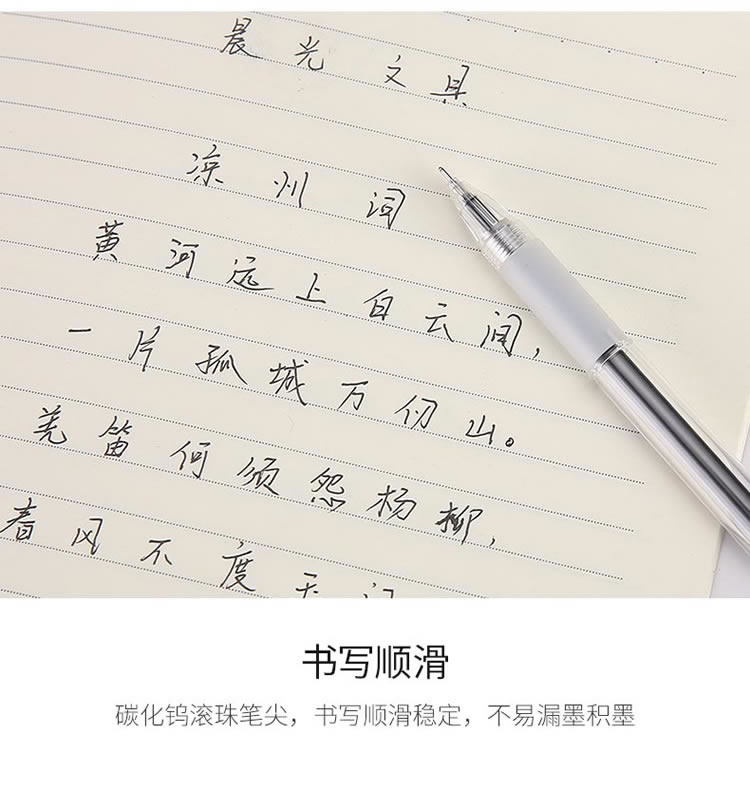 晨光文具
凉州词
黄河远上白云间,
一片孤城万仞山。
羌笛何须怨杨柳,
春风不度
书写顺滑
碳化钨滚珠笔尖，书写顺滑稳定，不易漏墨积墨